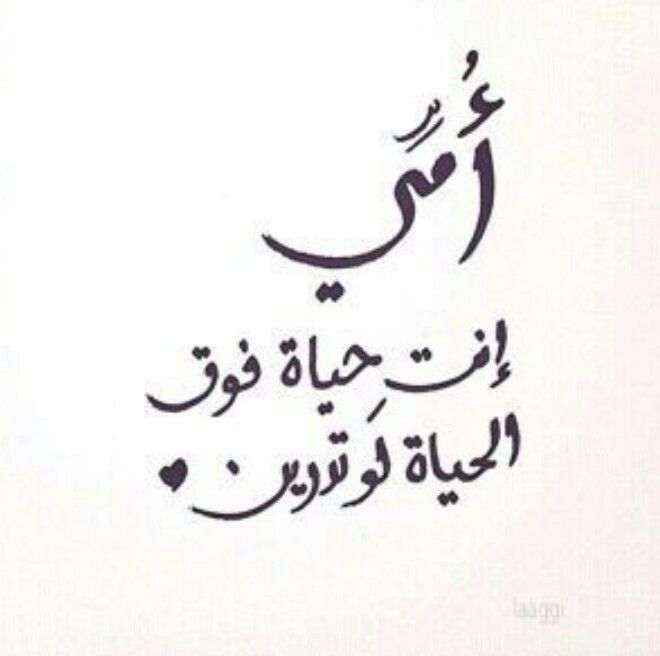 أُمِّي
إنتِ حياة فوق
الحياة لَو تدرين
laaggi